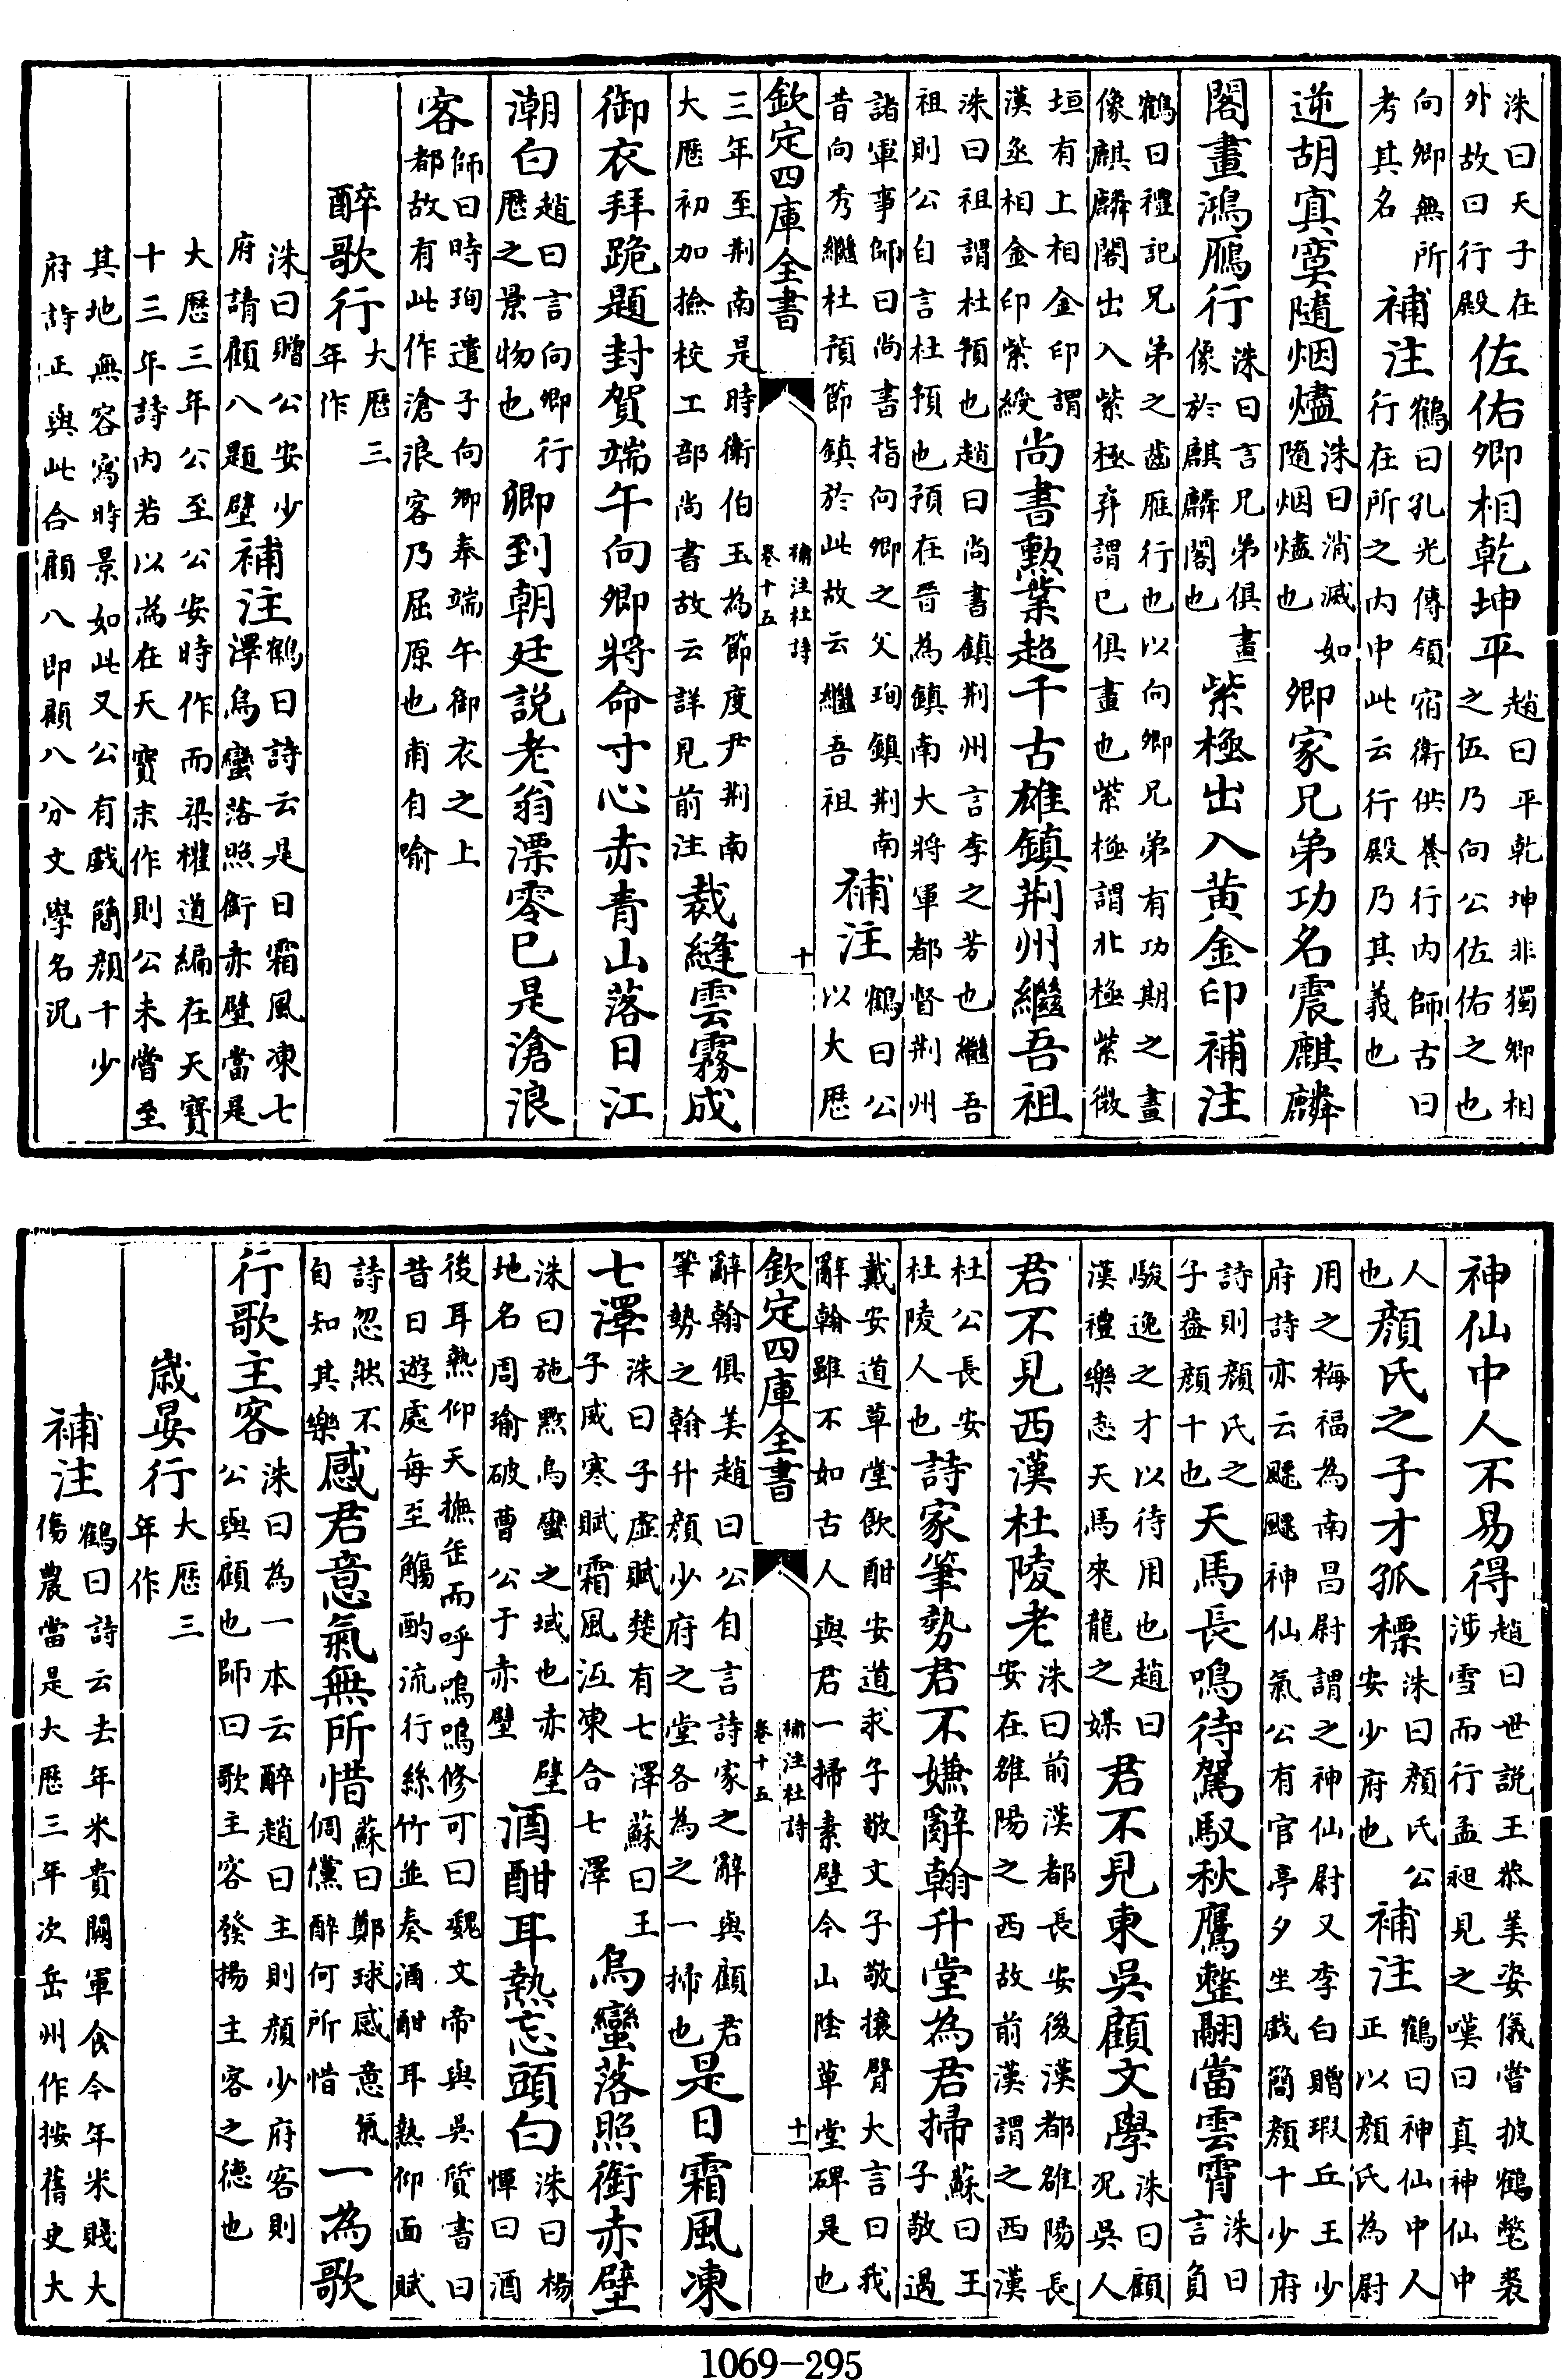 洙曰天子在外故曰行殿佐佑卿相乾坤平趙曰平乾坤非獨卿相之伍乃向公佐佑之也
向卿無所考其名補注鶴曰孔光傳領宿衛供養行内師古曰行在所之内中此云行殿乃其義也
逆胡冥寞隨烟燼洙曰消滅如隨烟燼也卿家兄弟功名震麒麟
閣畫鴻鴈行洙曰言兄弟俱畫像於麒麟閣也紫極出入黄金印補注
鶴曰禮記兄弟之齒雁行也以向卿兄弟有功期之畫像麒麟閣出入紫極弃謂已俱畫也紫極謂北極紫微
垣有上相金印謂漢丞相金印紫綬尚書勲業超千古雄鎮荆州繼吾祖
洙曰祖謂杜預也趙曰尚書鎮荆州言李之芳也繼吾祖則公自言杜預也預在晉為鎮南大將軍都督荆州
諸軍事師曰尚書指向卿之父珣鎮荆南昔向秀繼杜預節鎮於此故云繼吾祖補注鶴曰公以大厯
欽定四庫全書 補注杜詩 卷十五 十
三年至荆南是時衛伯玉為節度尹荆南大厯初加撿校工部尚書故云詳見前注裁縫雲霧成
御衣拜跪題封賀端午向卿將命寸心赤青山落日江
潮白趙曰言向卿行歷之景物也卿到朝廷説老翁漂零已是滄浪
客師曰時珣遣子向卿奉端午御衣之上都故有此作滄浪客乃屈原也甫自喻
醉歌行大厯三年作
洙曰贈公安少府請顧八題壁補注鶴曰詩云是日霜風凍七澤烏蠻落照銜赤壁當是
大厯三年公至公安時作而梁權道編在天寶十三年詩内若以為在天寶末作則公未嘗至
其地無容寫時景如此又公有戯簡顔十少府詩正與此合顧八即顧八分文學名况
神仙中人不易得趙曰世説王恭美姿儀嘗披鶴氅裘涉雪而行孟昶見之嘆曰真神仙中
人也顔氏之子才孤標洙曰顔氏公安少府也補注鶴曰神仙中人正以顔氏為尉
用之梅福為南昌尉謂之神仙尉又李白贈瑕丘王少府詩亦云飃飃神仙氣公有官亭夕坐戯簡顔十少府
詩則顔氏之子葢顔十也天馬長鳴待駕馭秋鷹整翮當雲霄洙曰言負
駿逸之才以待用也趙曰漢禮樂志天馬來龍之媒君不見東吳顧文學洙曰顧况吳人
君不見西漢杜陵老洙曰前漢都長安後漢都雒陽長安在雒陽之西故前漢謂之西漢
杜公長安杜陵人也詩家筆勢君不嫌辭翰升堂為君掃蘇曰王子敬過
戴安道草堂飲酣安道求子敬文子敬攘臂大言曰我辭翰雖不如古人與君一掃素壁今山陰草堂碑是也
欽定四庫全書 補注杜詩 卷十五 十一
辭翰俱美趙曰公自言詩家之辭與顧君筆勢之翰升顔少府之堂各為之一掃也是日霜風凍
七澤洙曰子虚賦楚有七澤蘇曰王子咸寒賦霜風沍凍合七澤烏蠻落照銜赤壁
洙曰施黔烏蠻之域也赤壁地名周瑜破曹公于赤壁酒酣耳熱忘頭白洙曰楊惲曰酒
後耳熱仰天撫缶而呼嗚嗚修可曰魏文帝與吳質書曰昔日遊處每至觴酌流行絲竹並奏酒酣耳熱仰面賦
詩忽然不自知其樂感君意氣無所惜蘇曰鄭球感意氣倜儻醉何所惜一為歌
行歌主客洙曰為一本云醉趙曰主則顔少府客則公與顧也師曰歌主客發揚主客之德也
歲晏行大厯三年作
補注鶴曰詩云去年米貴闕軍食今年米賤大傷農當是大厯三年次岳州作按舊史大
1069-295